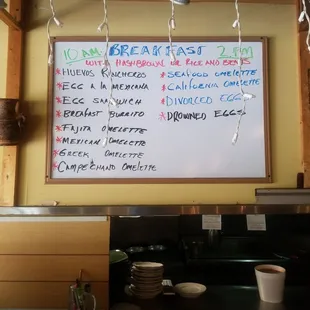 10 AM BREAKFAST 2 PM
WITH HASHBROWN OR RICE AND BEANS
*HUEVOS RANCHEROS
*EGG A LA MEXICANA
*EGG SANDWICH
*BREAKFAST BURRITO
*FAJITA OMELETTE
*MEXICAN OMELETTE
*GREEK OMELETTE
*CAMPECHANO OMELETTE
*SEAFOOD OMELETTE
*CALIFORNIA OMELETTE
*DIVORCED EGGS
*DROWNED EGGS